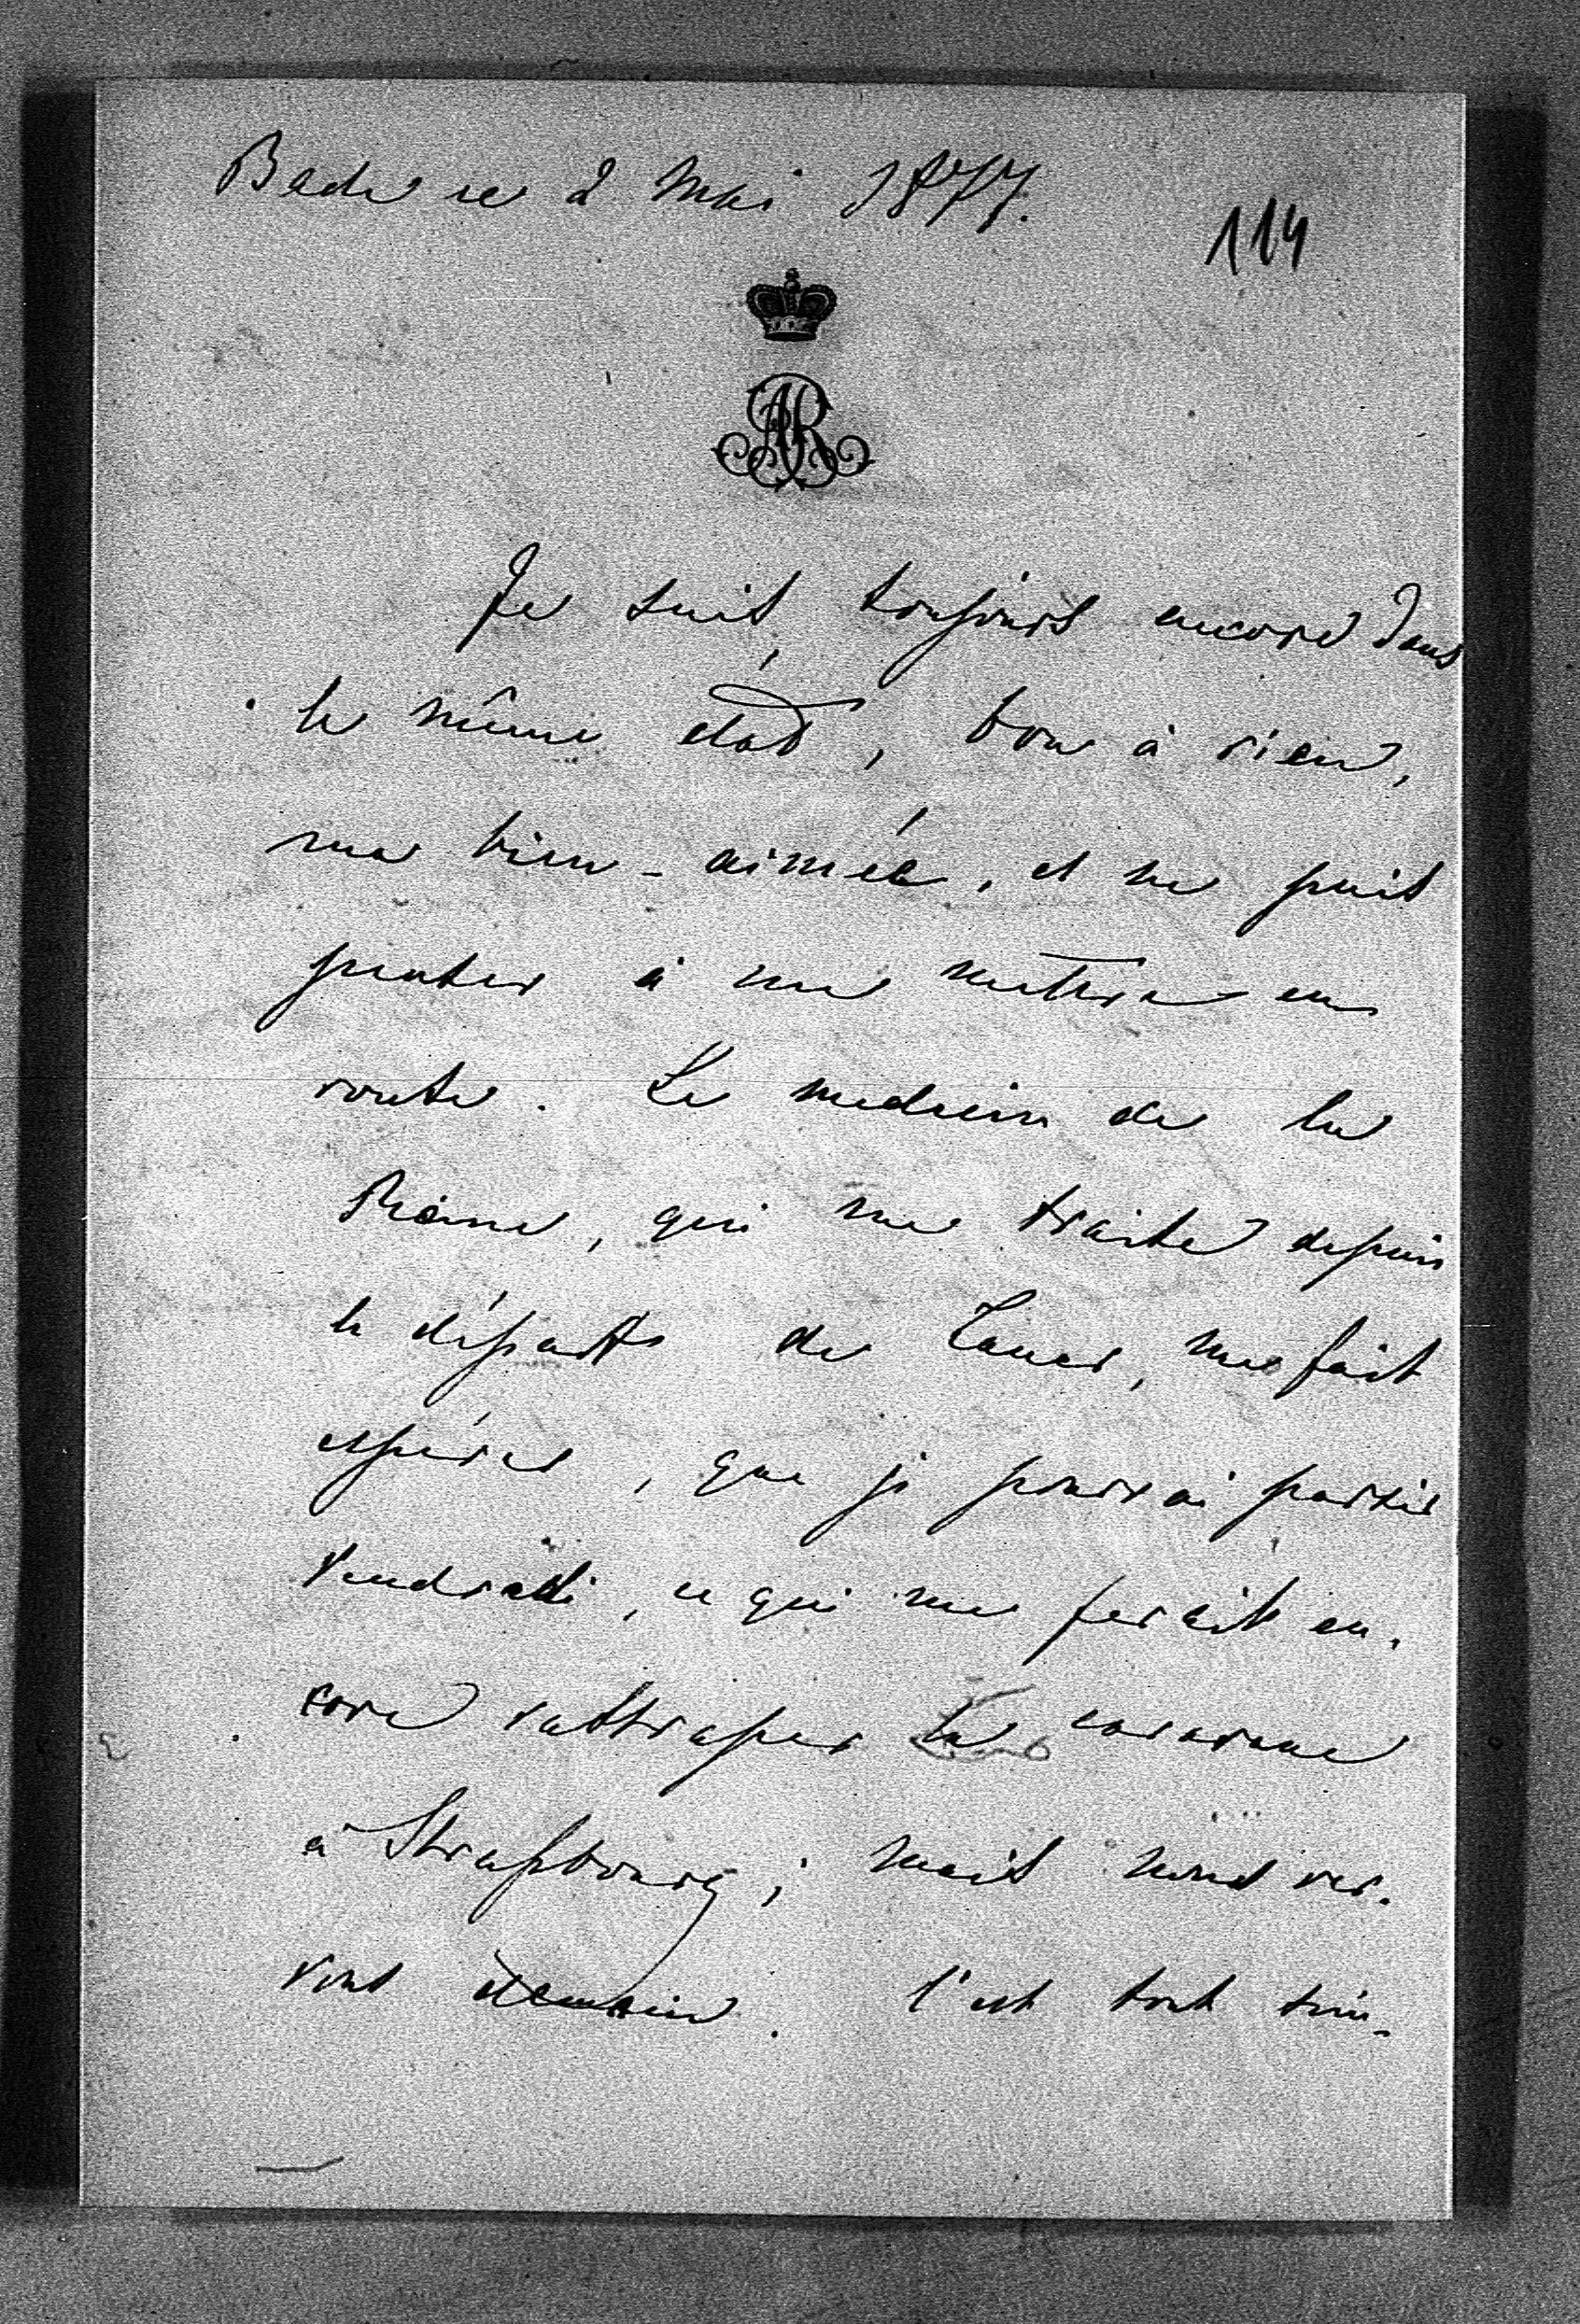 Bade ce 2 Mai 1877.
114
AR
Je suis toujours encore dans
le même état, bon à rien,
ma bien-aimée, et ne puis
penser à me mettre en
route. Le medecin de la
Reine, qui me traite depuis
le départ de Lauer, me fait
espérer, que je pourrai partir
Vendredi, ce qui me ferait en-
core rattraper la caravane
à Strassbourg; mais nous ver-
rons demain. C'est tout sim-